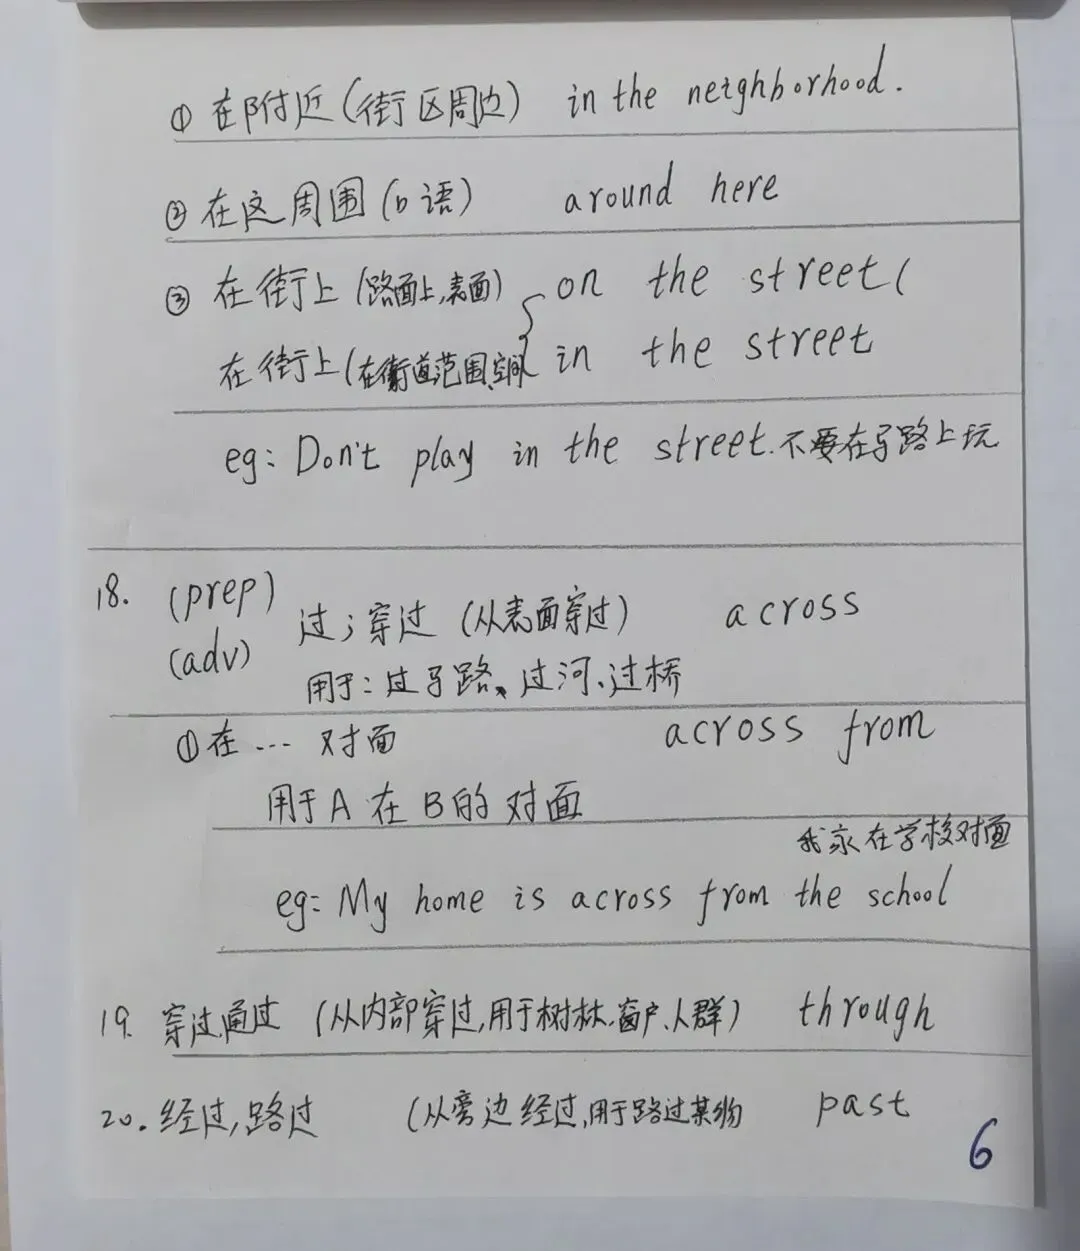 ① 在附近(街区周边) in the neighborhood.
② 在这周围(口语) around here
③ 在街上(路面上,表面) { on the street(
在街上(在街道范围、空间 in the street
eg: Don't play in the street.不要在马路上玩
18. (prep)
(adv) 过;穿过 (从表面穿过) across
用于:过马路、过河、过桥
①在…对面 across from
用于A在B的对面
我家在学校对面
eg: My home is across from the school
19. 穿过,通过 (从内部穿过,用于树林、窗户、人群) through
20. 经过,路过 (从旁边经过,用于路过某物 past
6